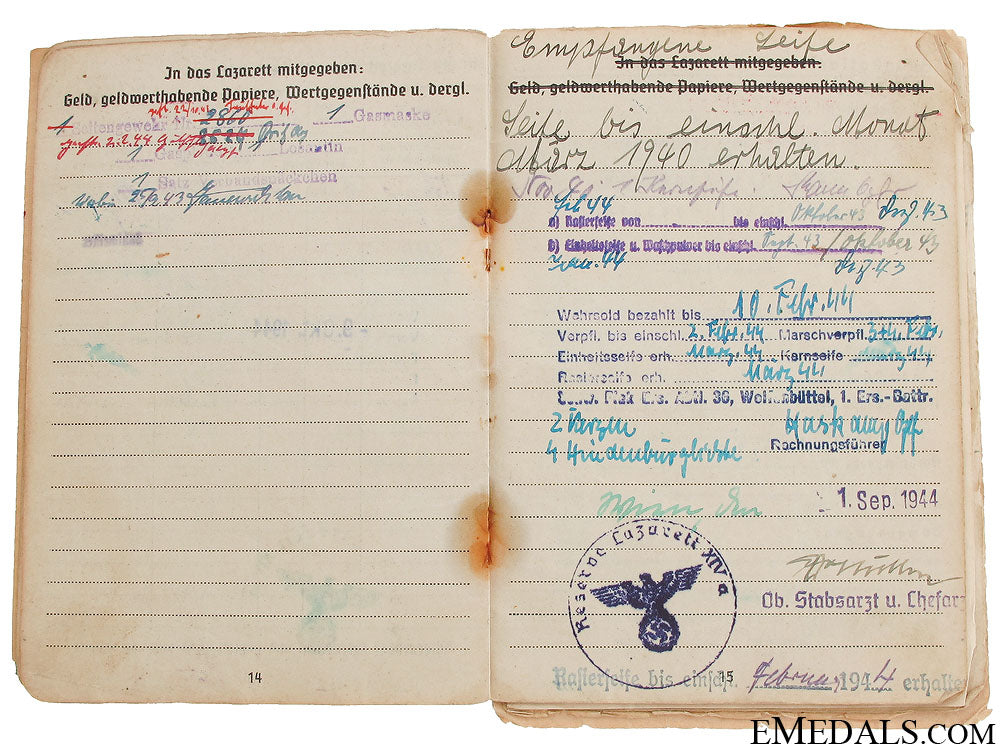 In das Lazarett mitgegeben:
Geld, geldwerthabende Papiere, Wertgegenstände u. dergl.
2860
1 Seitengewehr Nr. 1 Gasmaske
1
1 Satz Verbandpäckchen
14
Empfangene Seife
In das Lazarett mitgegeben:
Geld, geldwerthabende Papiere, Wertgegenstände u. dergl.
Seife bis einschl. Monat
März 1940 erhalten
Nov. 40 1 Kernseife
Feb 44
a) Rasierseife von bis einschl. Oktober 43 Dez. 43
b) Einheitsseife u. Waschpulver bis einschl. Sept. 43 / Oktober 43
Jan. 44 Dez. 43
Wehrsold bezahlt bis 10. Febr. 44
Verpfl. bis einschl. 2. Febr. 44 Marschverpfl. 3+4. Febr.
Einheitsseife erh. März. 44 Kernseife März 44
Rasierseife erh. März 44
Schw. Flak Ers. Abtl. 36, Wolfenbüttel, 1. Ers.-Battr.
2 Kerzen
Rechnungsführer
4 Hindenburglichte
Wien, den 1. Sep. 1944
Reserve Lazarett XIV a
Ob. Stabsarzt u. Chefarz
15
Rasierseife bis einschl. Februar 1944 erhalten
EMEDALS.COM